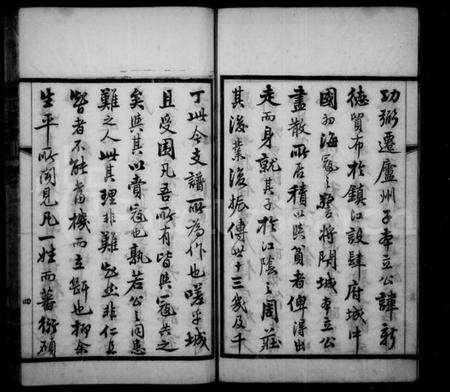 功弼遷廬州子本立公諱新
德貿布於鎮江設肆府城中
國初海寇之警將閉城本立公
盡散所居積以與貧者俾得出
走而身就其子於江陰之周莊
其後業復振傳世十三我及千
丁此今支譜所為作也嗟乎城
且受困凡吾所有皆與寇共之
矣與其以賷寇也孰若公之同患
難之人此其理非難知並非仁且
智者不能當機而立斷也抑余
生平所聞見凡一姓而蕃衍碩
四